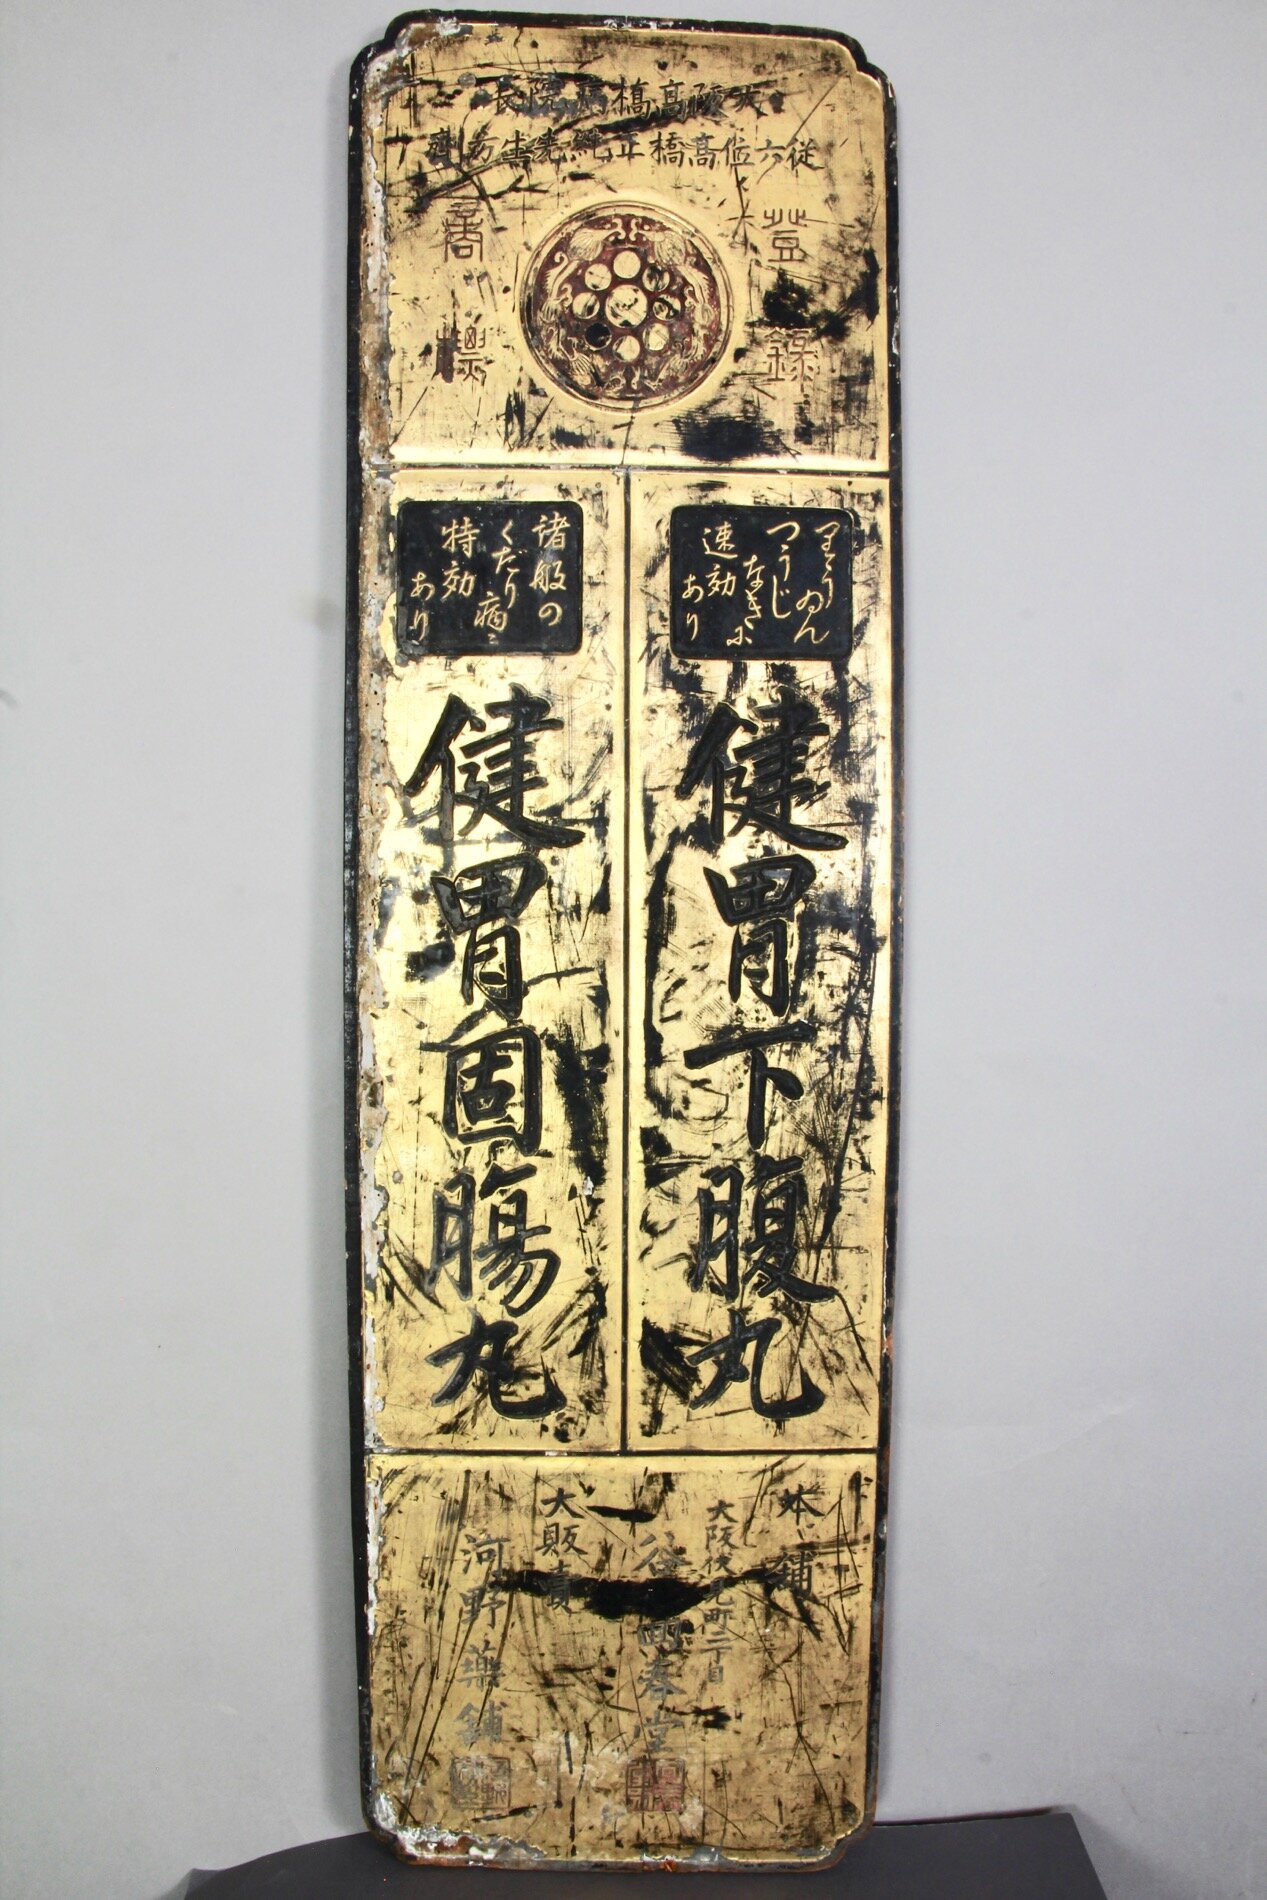 大阪高橋病院長
従六位高橋正純先生方剤
登録
商標
里うゐん
つうじ
なきに
速効
あり
健胃下腹丸
諸般の
くだり病ニ
特効
あり
健胃固腸丸
本舗
大阪伏見町二丁目
谷回春堂
大販賣
河野藥舗